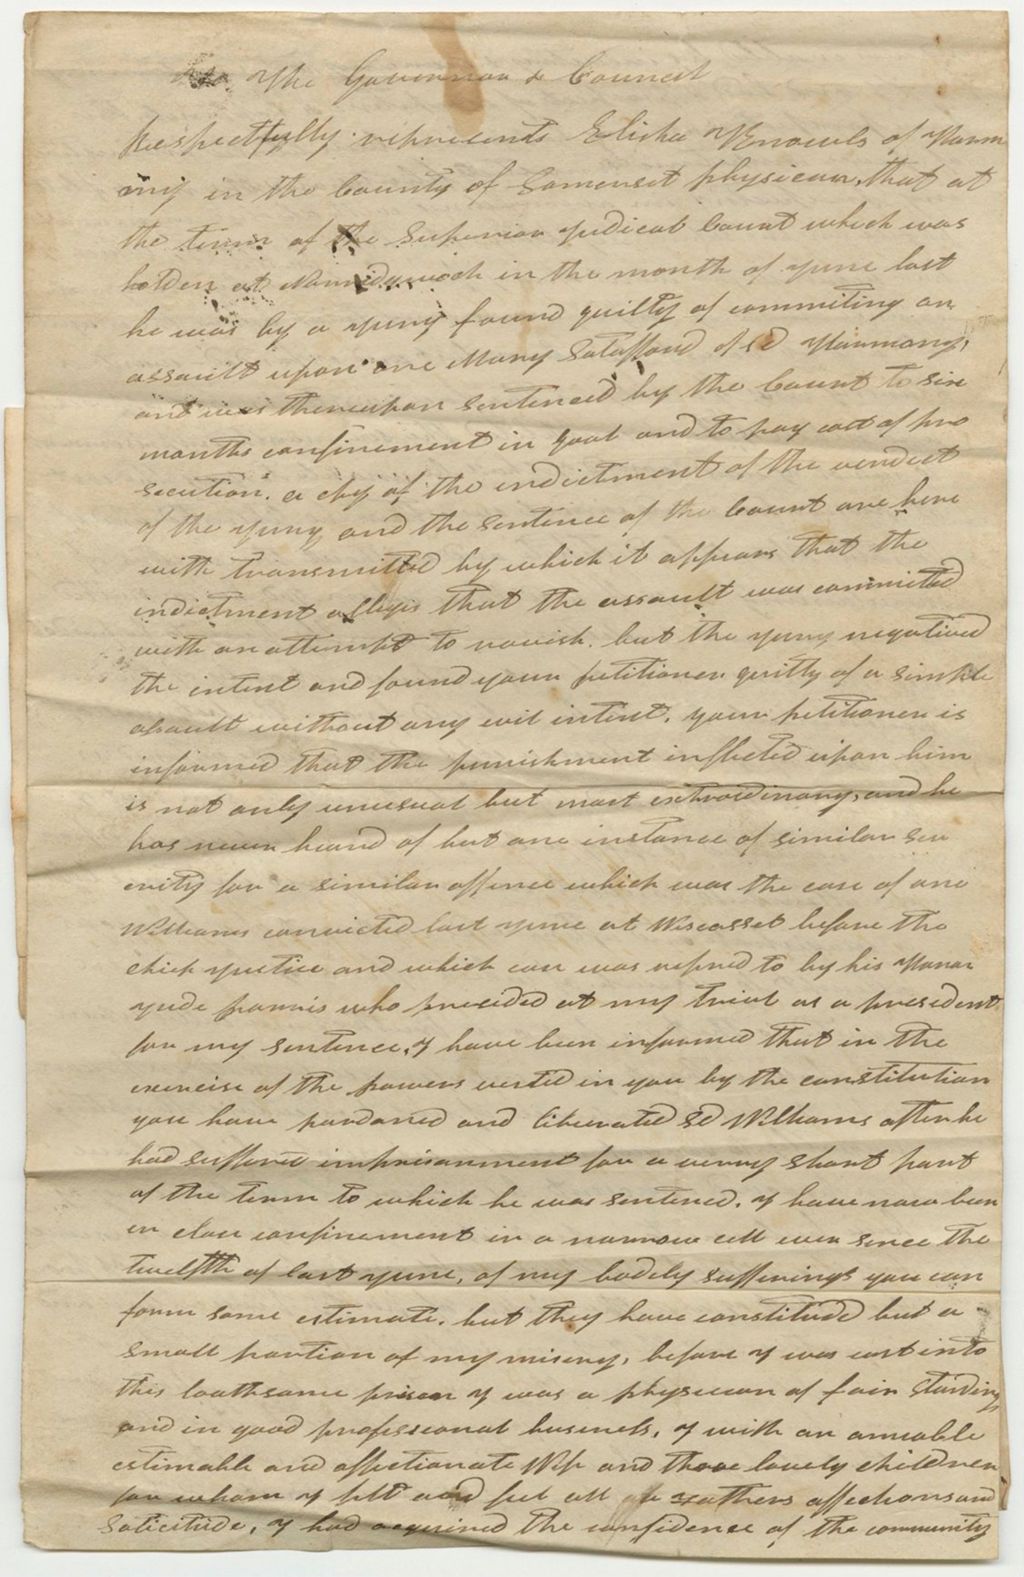 The Governor & Council
Respectfully represents Elisha Knowls of Harm
ony in the County of Somerset physician, that at
the term of the Superior Judical Court which was
holden at Norridgwock in the month of June last
he was by a Jury found guilty of commiting an
assault upon one Mary of sd Harmony,
and was thereupon sentenced by the Court to six
months confinement in goal and to pay cost of pro
secution. a cpy of the indictment of the verdect
of the Jury and the sentence of the Court are here
with transmitted by which it appears that the
indictment alleges that the assault was committed
with an attempt to ravish. but the Jury negatived
the intent and found your petitioner guilty of a simple
assault without any evil intent. your petitioner is
informed that the punishment inflicted upon him
is not only unusual but most extraordinary, and he
has never heard of but one instance of similar sev
erity for a similar offence which was the case of one
Williams convicted last June at Wiscasset before the
chief Justice and which case was refered to by his Honor
Jude parris who presided at my trial as a presedent
for my sentence, I have been informed that in the
exercise of the powers vested in you by the constitution
you have pardoned and liberated sd Williams after he
had suffered imprisonment for a verry short part
of the term to which he was sentenced. I have now been
in close confinement in a narrow cell ever since the
twelfth of last June, of my bodely sufferings you can
form some estimate. but they have constituted but a
small portion of my misery, before I was cast into
this loathsome prison I was a physician of fair standing
and in good professional business. I with an amiable
estimable and affectionate Wife and three lovely children
for whom I felt and feel all a fathers affections and
solicitude, I had acquired the confidence of the community